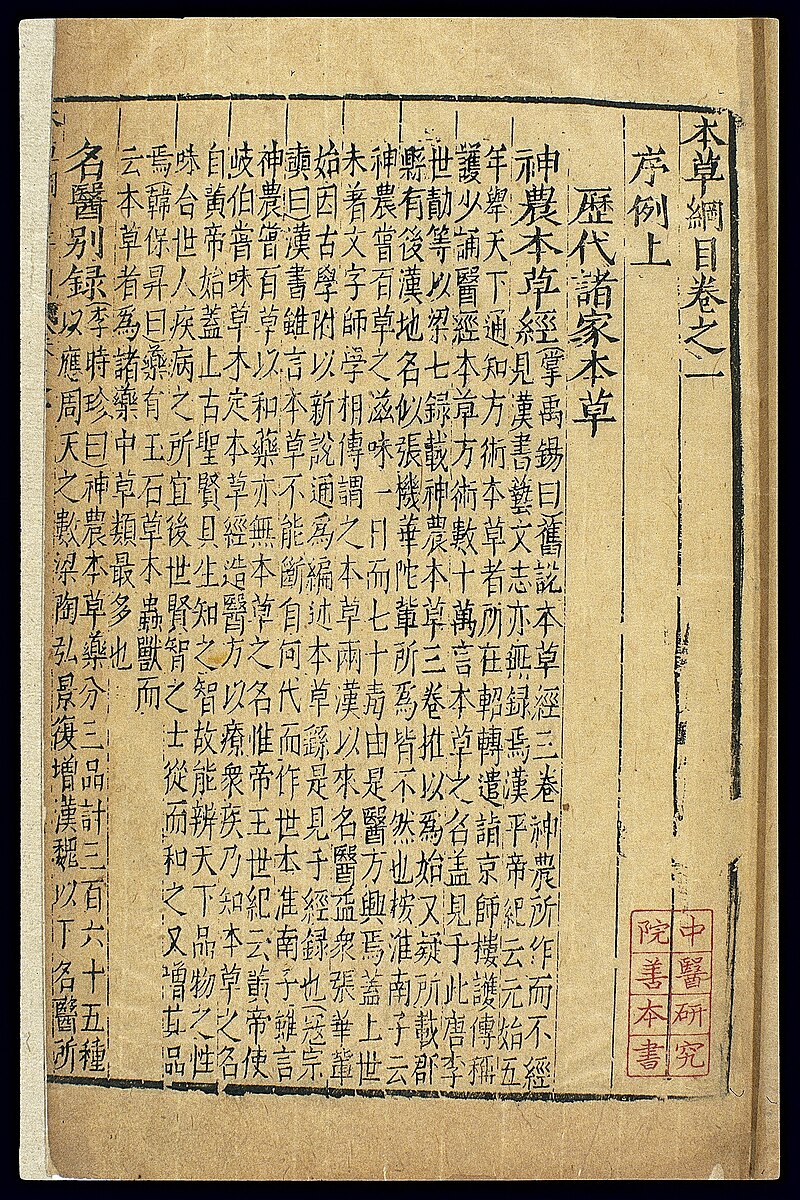 本草綱目卷之一
序例上
歷代諸家本草
神農本草經掌禹錫曰舊說本草經三卷神農所作而不經
見漢書藝文志亦無録焉漢平帝紀云元始五
年舉天下通知方術本草者所在軺轉遣詣京師摟護傳稱
護少誦醫經本草方術數十萬言本草之名蓋見于此唐李
世勣等以梁七録載神農本草三卷推以為始又疑所載郡
縣有後漢地名似張機華陀輩所為皆不然也按淮南子云
神農嘗百草之滋味一日而七十毒由是醫方興焉蓋上世
未著文字師學相傳謂之本草兩漢以來名醫益衆張華輩
始因古學附以新說通為編述本草繇是見于經録也寇宗
奭曰漢書雖言本草不能斷自何代而作世本淮南子雖言
神農嘗百草以和藥亦無本草之名惟帝王世紀云黃帝使
岐伯嘗味草木定本草經造醫方以療衆疾乃知本草之名
自黃帝始蓋上古聖賢具生知之智故能辨天下品物之性
味合世人疾病之所宜後世賢智之士從而和之又增其品
焉韓保昇曰藥有玉石草木蟲獸而
云本草者為諸藥中草類最多也
名醫别録李時珍曰神農本草藥分三品計三百六十五種
以應周天之數梁陶弘景復增漢魏以下名醫所
中醫研究
院善本書